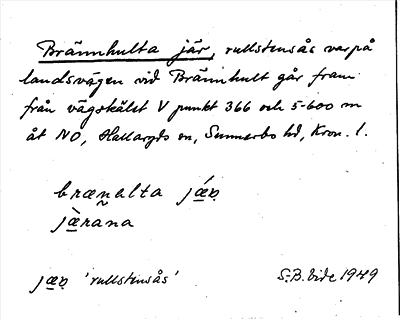 Brännhulta jär, rullstensås varpå
landsvägen vid Brännhult går fram
från vägskälet V punkt 366 och 5-600 m
åt NO, Hallaryds sn, Sunnerbo hd, Kron. l.
brænalta jǽ̲ṛ
jæ̲̀rana
jæ̲ṛ 'rullstensås'
S-B. Vide 1949